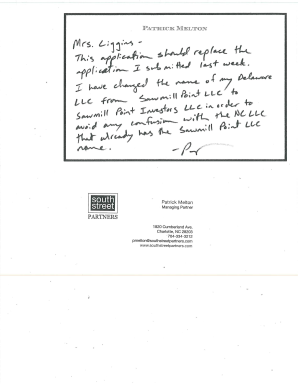 PATRICK MELTON
Mrs. Liggins -
This application should replace the
application I submitted last week.
I have changed the name of my Delaware
LLC from Sawmill Point LLC to
Sawmill Point Investors LLC in order to
avoid any confusion with the NC LLC
that already has the Sawmill Point LLC
name.
south
street
PARTNERS
Patrick Melton
Managing Partner
1920 Cumberland Ave.
Charlotte, NC 28203
pmelton@southstreetpartners.com
www.southstreetpartners.com